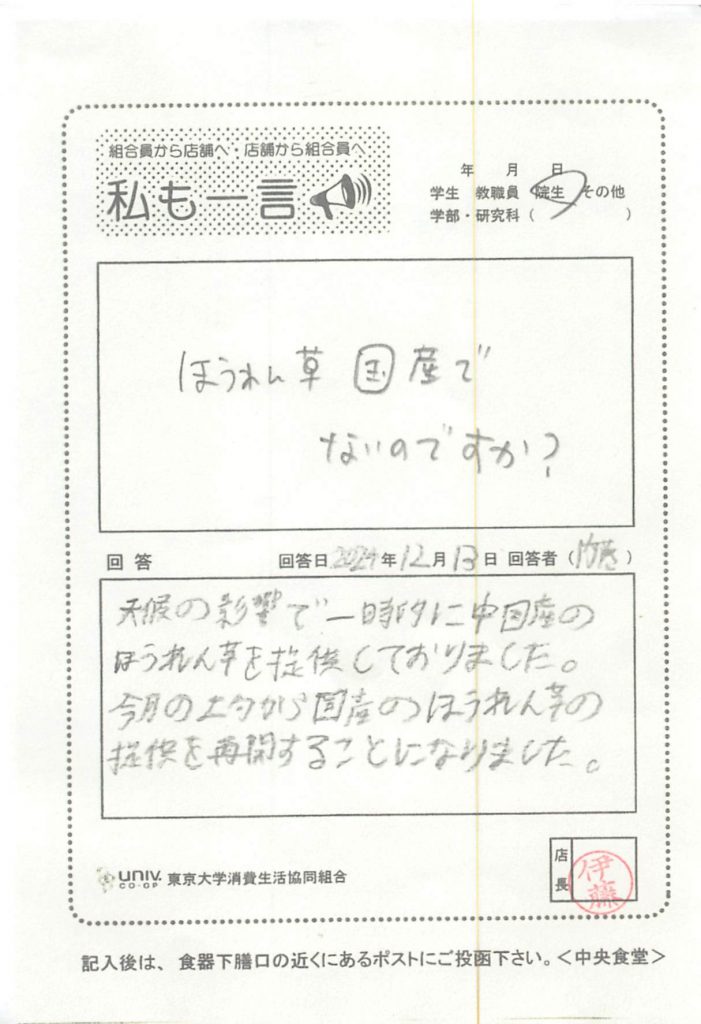 組合員から店舗へ・店舗から組合員へ
私も一言
年 月 日
学生 教職員 院生 その他
学部・研究科( )
ほうれん草 国産で
ないのですか?
回答 回答日 2024年12月13日 回答者( )
天候の影響で一時的に中国産の
ほうれん草を提供しておりました。
今月の上旬から国産のほうれん草の
提供を再開することになりました。
UNIV. CO-OP 東京大学消費生活協同組合
店長 伊藤
記入後は、食器下膳口の近くにあるポストにご投函下さい。<中央食堂>